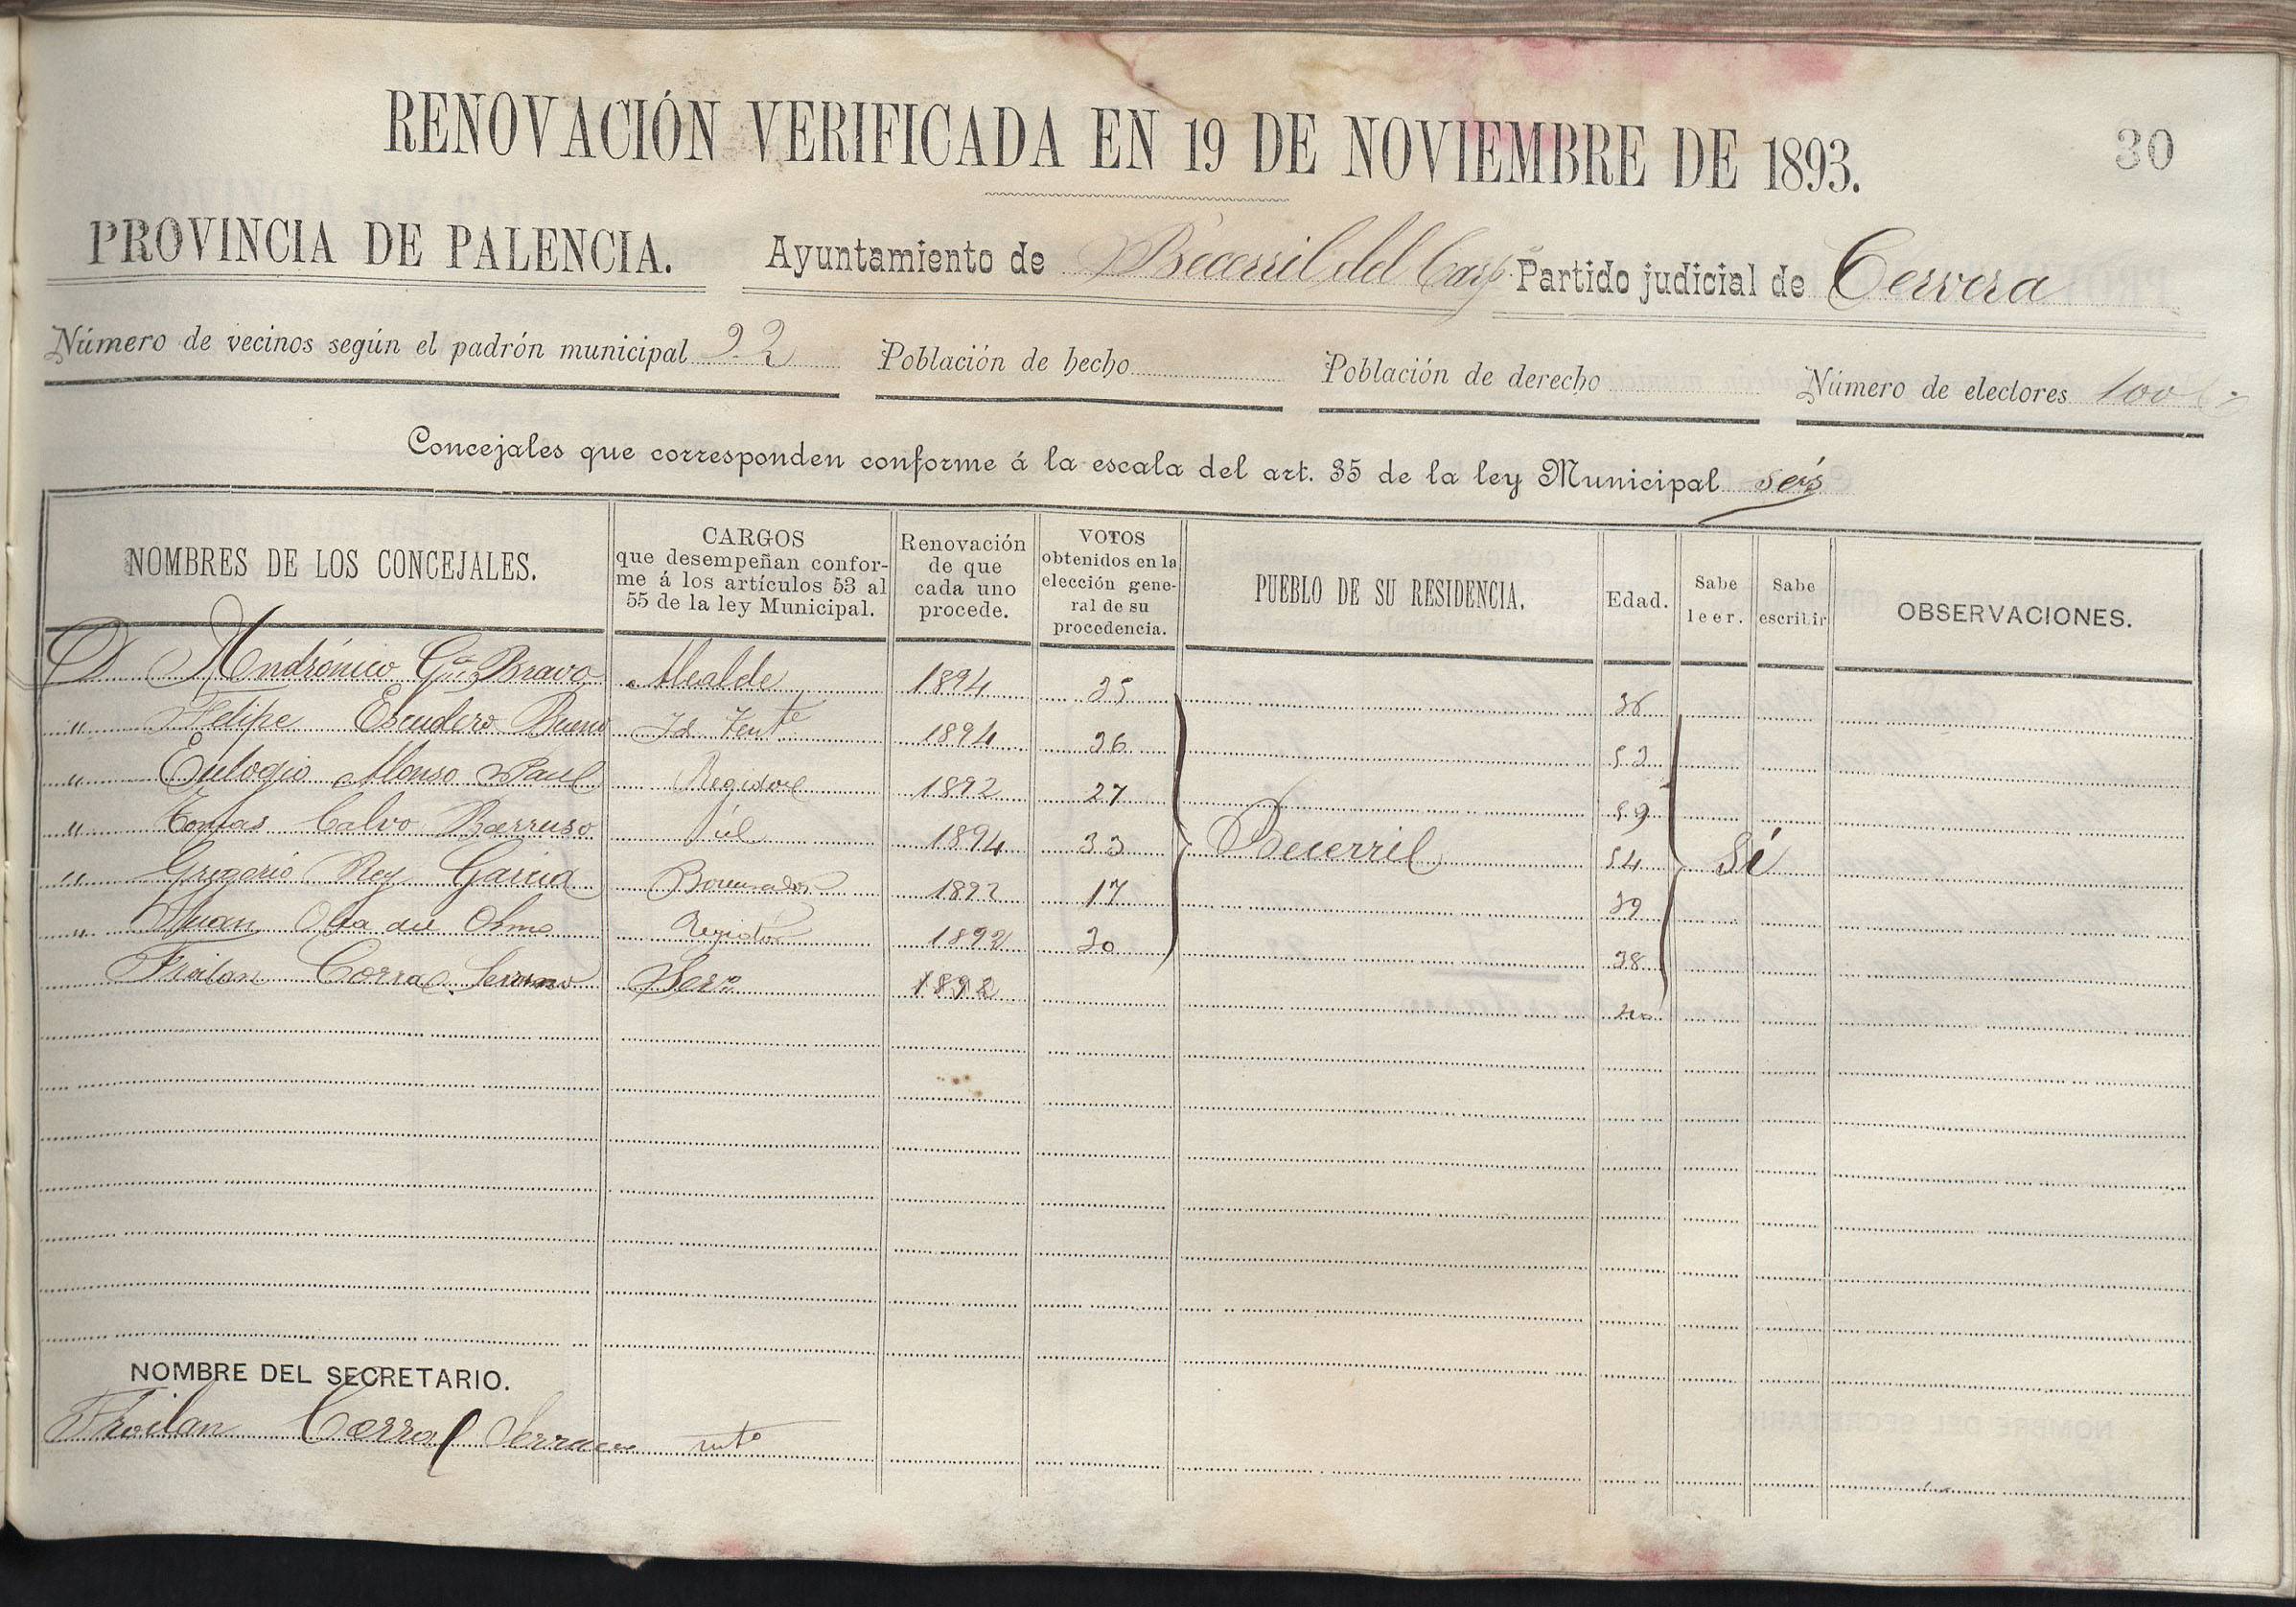 RENOVACIÓN VERIFICADA EN 19 DE NOVIEMBRE DE 1893.
30
PROVINCIA DE PALENCIA. Ayuntamiento de Becerril del Carp. Partido judicial de Cervera
Número de vecinos según el padrón municipal 92 Población de hecho Población de derecho Número de electores 100
Concejales que corresponden conforme á la escala del art. 35 de la ley Municipal seis
NOMBRES DE LOS CONCEJALES. CARGOS que desempeñan conforme á los artículos 53 al 55 de la ley Municipal. Renovación de que cada uno procede. VOTOS obtenidos en la elección general de su procedencia. PUEBLO DE SU RESIDENCIA. Edad. Sabe leer. Sabe escribir OBSERVACIONES.
D. Andrónico Gª Bravo Alcalde 1894 35 36
" Felipe Escudero Bueno Id Tente 1894 36 53
" Eulogio Alonso Paul Regidor 1892 27 59
" Tomas Calvo Barruso id 1894 33 Becerril 54 Sí
" Gregorio Rey Garcia 1892 17 39
" Juan del Olmo Regidor 1892 30 38
Froilan Corral Serrano Serº 1892 40
NOMBRE DEL SECRETARIO.
Froilan Corral Serrano